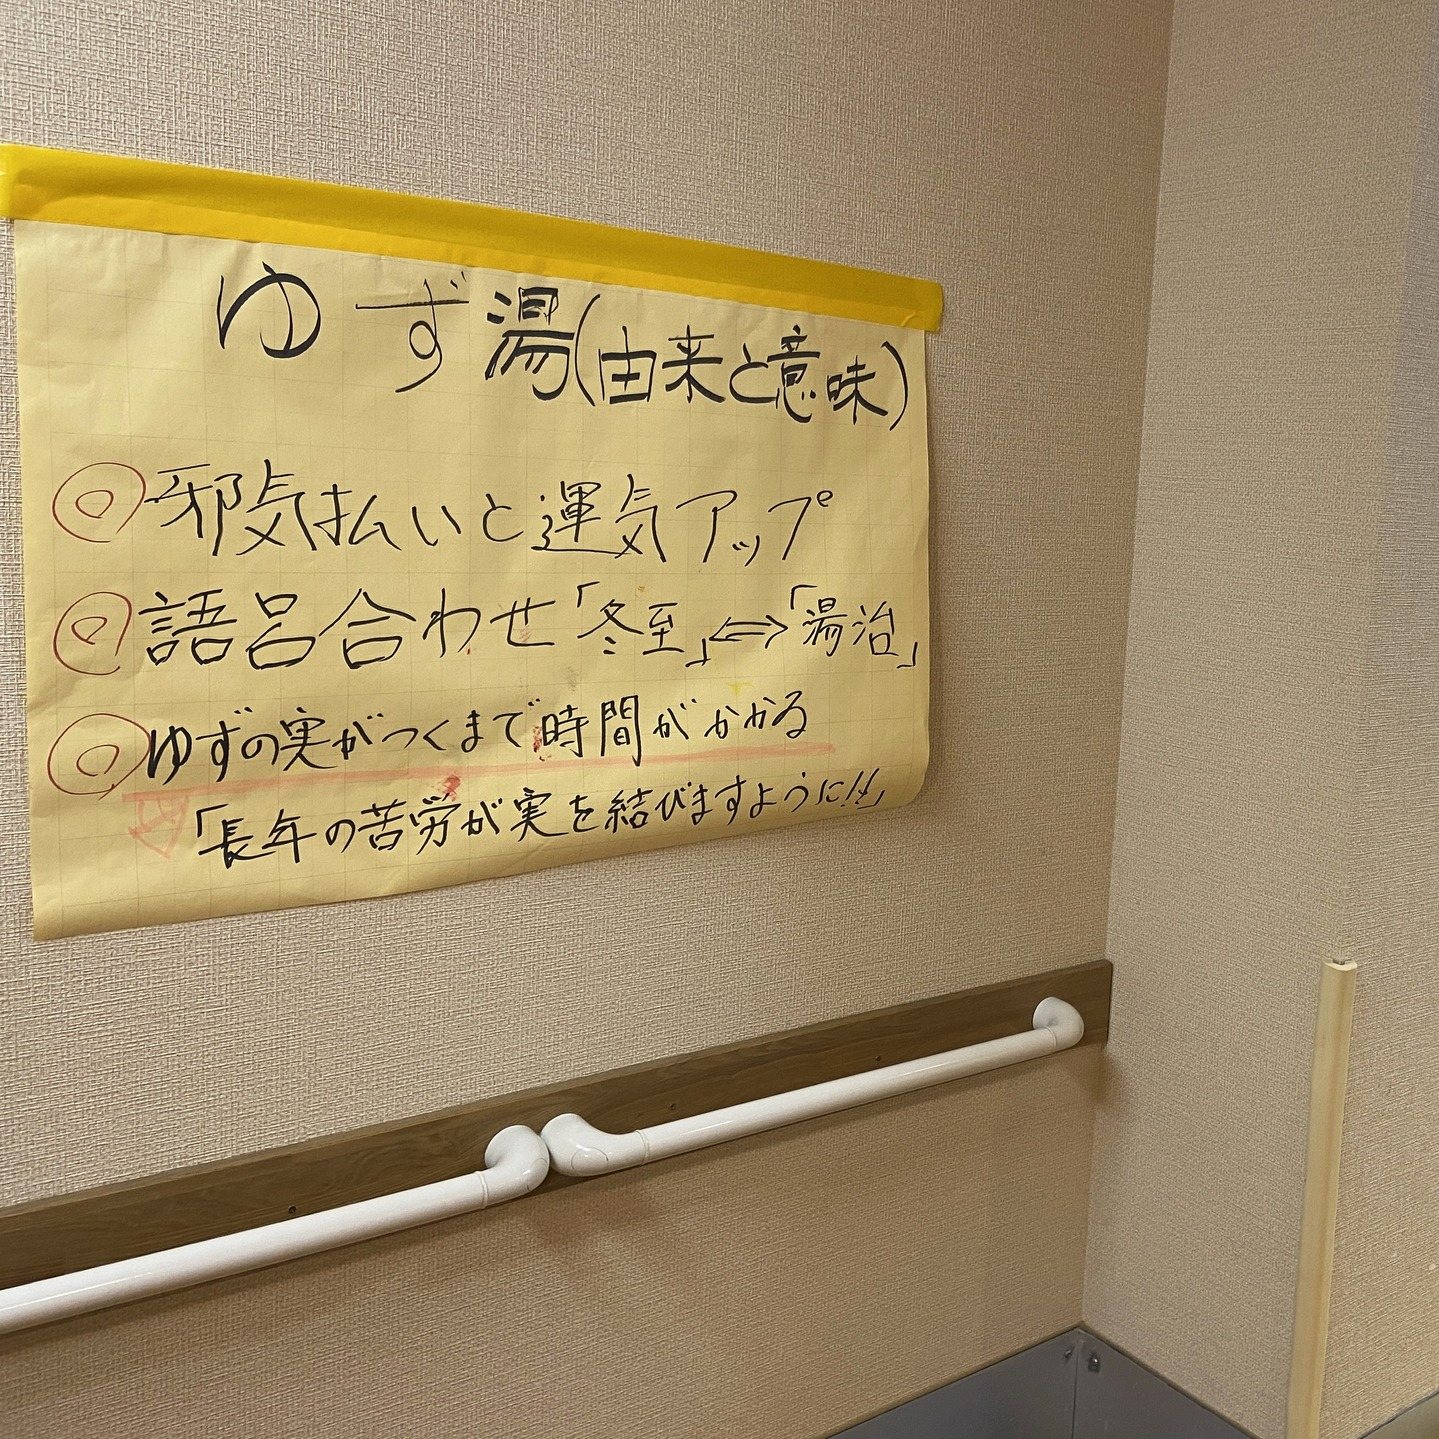 ゆず湯(由来と意味)
◎邪気払いと運気アップ
◎語呂合わせ「冬至」⇔「湯治」
◎ゆずの実がつくまで時間がかかる
「長年の苦労が実を結びますように!!」